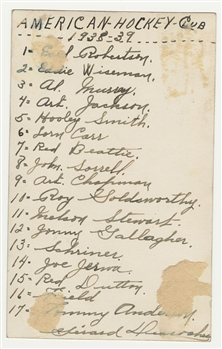 AMERICAN-HOCKEY-CUB
1938-39
1= Robertson.
2= Eddie Wiseman.
3= Al. Murray
4= Art. Jackson.
5= Hooley Smith.
6= Lorn Carr
7= Red Beattie.
8= John Sorrell.
9= Art. Chapman
10= Roy Goldsworthy.
11= Nelson Stewart
12= Jonny Gallagher.
13= Schriner.
14= Joe Jerwa.
15= Red Dutton.
16= Field
17= Tommy Anderson